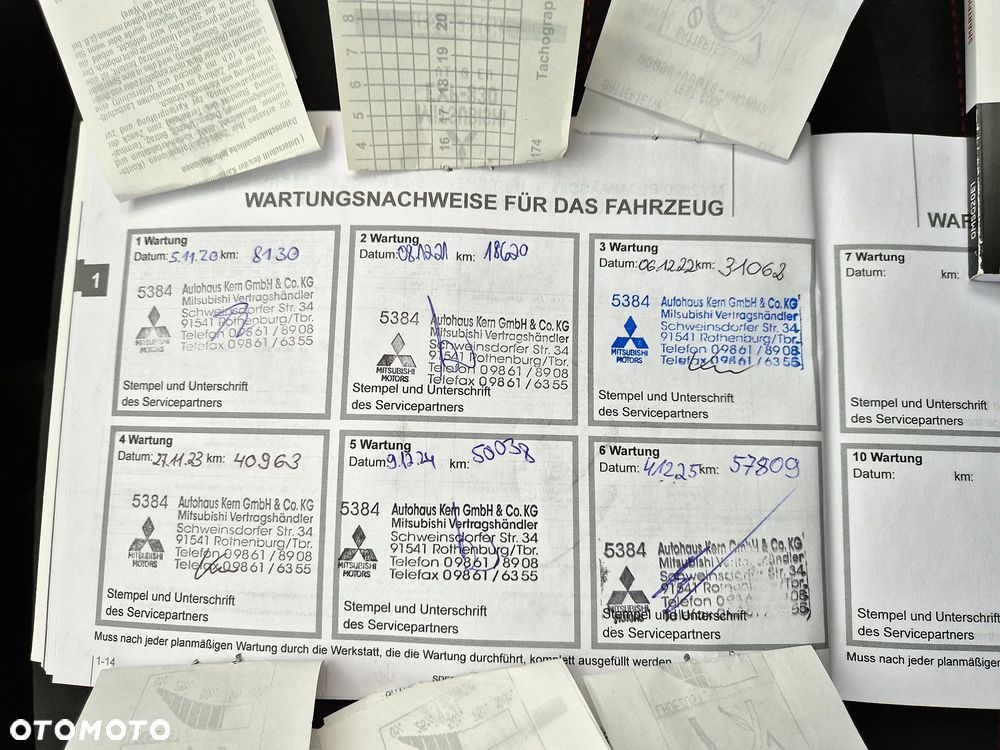 Tachograp
174
4 5 6 7 8
16 17 18 19 20
WARTUNGSNACHWEISE FÜR DAS FAHRZEUG
1
1 Wartung
Datum: 5.11.20 km: 8130
5384 Autohaus Kern GmbH & Co. KG
Mitsubishi Vertragshändler
Schweinsdorfer Str. 34
91541 Rothenburg/Tbr.
Telefon 0 98 61 / 89 08
Telefax 0 98 61 / 63 55
MITSUBISHI
MOTORS
Stempel und Unterschrift
des Servicepartners
2 Wartung
Datum: 08.12.21 km: 18620
5384 Autohaus Kern GmbH & Co. KG
Mitsubishi Vertragshändler
Schweinsdorfer Str. 34
91541 Rothenburg/Tbr.
Telefon 0 98 61 / 89 08
Telefax 0 98 61 / 63 55
MITSUBISHI
MOTORS
Stempel und Unterschrift
des Servicepartners
3 Wartung
Datum: 06.12.22 km: 31062
5384 Autohaus Kern GmbH & Co. KG
Mitsubishi Vertragshändler
Schweinsdorfer Str. 34
91541 Rothenburg/Tbr.
Telefon 0 98 61 / 89 08
Telefax 0 98 61 / 63 55
MITSUBISHI
MOTORS
Stempel und Unterschrift
des Servicepartners
4 Wartung
Datum: 27.11.23 km: 40963
5384 Autohaus Kern GmbH & Co. KG
Mitsubishi Vertragshändler
Schweinsdorfer Str. 34
91541 Rothenburg/Tbr.
Telefon 0 98 61 / 89 08
Telefax 0 98 61 / 63 55
MITSUBISHI
MOTORS
Stempel und Unterschrift
des Servicepartners
5 Wartung
Datum: 9.12.24 km: 50038
5384 Autohaus Kern GmbH & Co. KG
Mitsubishi Vertragshändler
Schweinsdorfer Str. 34
91541 Rothenburg/Tbr.
Telefon 0 98 61 / 89 08
Telefax 0 98 61 / 63 55
MITSUBISHI
MOTORS
Stempel und Unterschrift
des Servicepartners
6 Wartung
Datum: 4.12.25 km: 57809
5384 Autohaus Kern GmbH & Co. KG
Mitsubishi Vertragshändler
Schweinsdorfer Str. 34
91541 Rothenburg/Tbr.
Telefon 0 98 61 / 89 08
Telefax 0 98 61 / 63 55
MITSUBISHI
MOTORS
Stempel und Unterschrift
des Servicepartners
Muss nach jeder planmäßigen Wartung durch die Werkstatt, die die Wartung durchführt, komplett ausgefüllt werden
1-14
WAR
7 Wartung
Datum: km:
Stempel und Unterschrift
des Servicepartners
10 Wartung
Datum: km:
Stempel und Unterschrift
des Servicepartners
Muss nach jeder planmäßigen
OTOMOTO